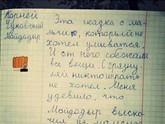 Корней
Чуковский
Мойдодыр
Эта сказка о ма-
льчике, который не
хотел умыватся.
И от него сбежали
все вещи. С грязну-
лей никто играть
не хотел. Меня
удевило, что
Мойдодыр выско-